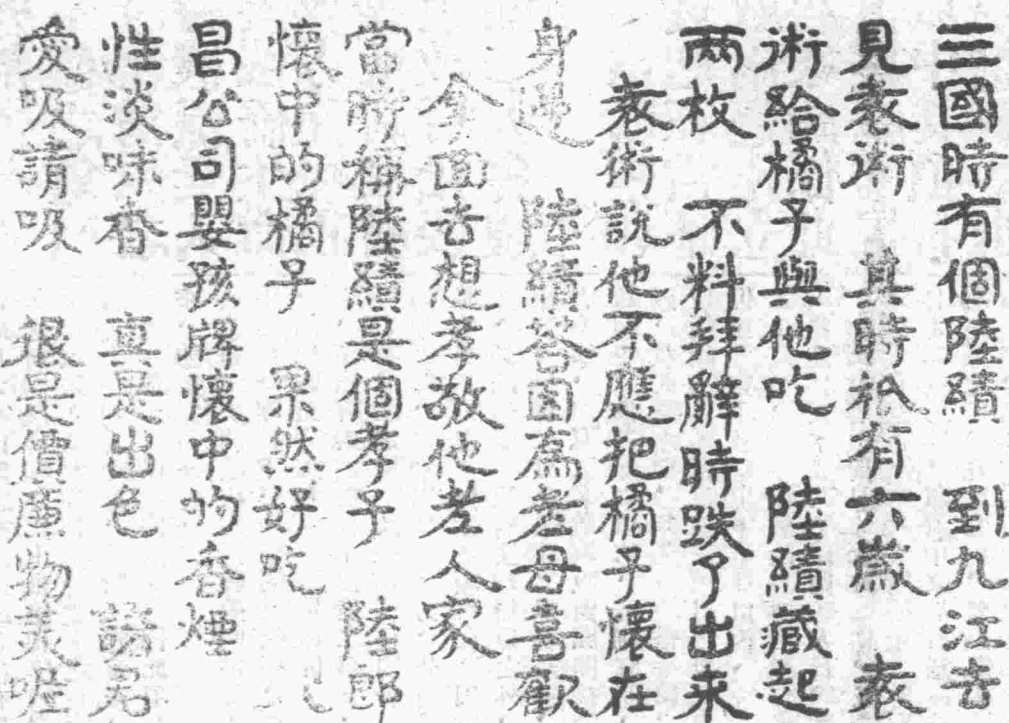 三國時有個陸績　到九江去
見袁術　其時祇有六歲　袁
術給橘子與他吃　陸績藏起
兩枚　不料拜辭時跌了出來
袁術說他不應把橘子懷在
身邊　陸績答因爲老母喜歡
拿回去想孝敬他老人家
當時稱陸績是個孝子　陸郎
懷中的橘子　果然好吃
昌公司嬰孩牌懷中的香煙
性淡味香　真是出色　諸君
愛吸請吸　很是價廉物美